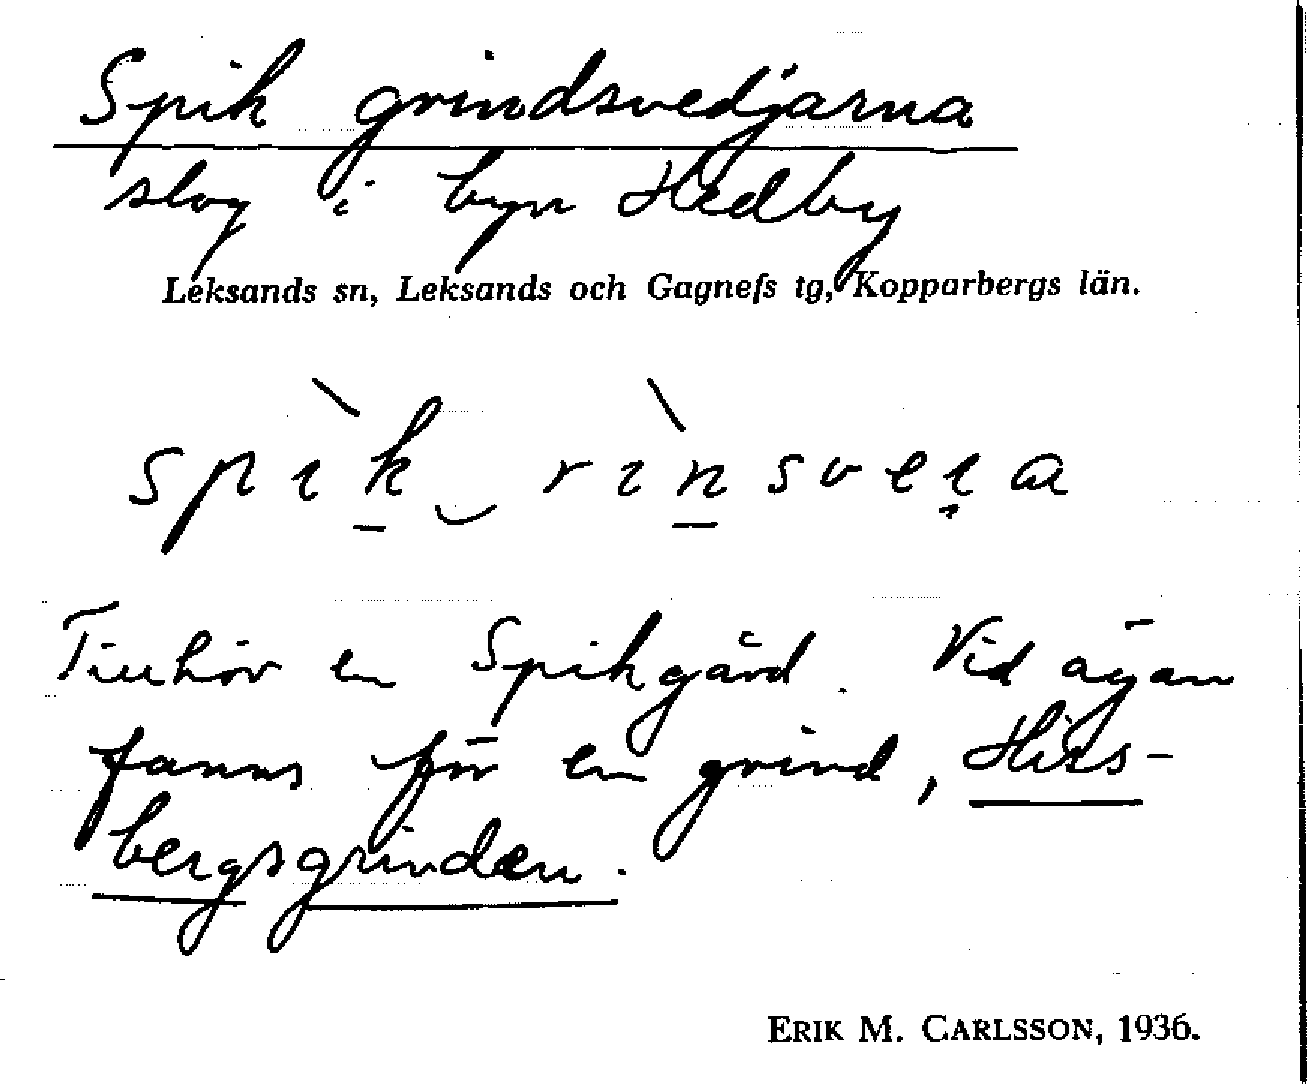 Spik grindsvedjarna
slog i byn Hedby
Leksands sn, Leksands och Gagnefs tg, Kopparbergs län.
spìk‿rìnsveı̣a
Tillhör en Spikgård. Vid ägan
fanns förr en grind, Hirs-
bergsgrinden.
ERIK M. CARLSSON, 1936.